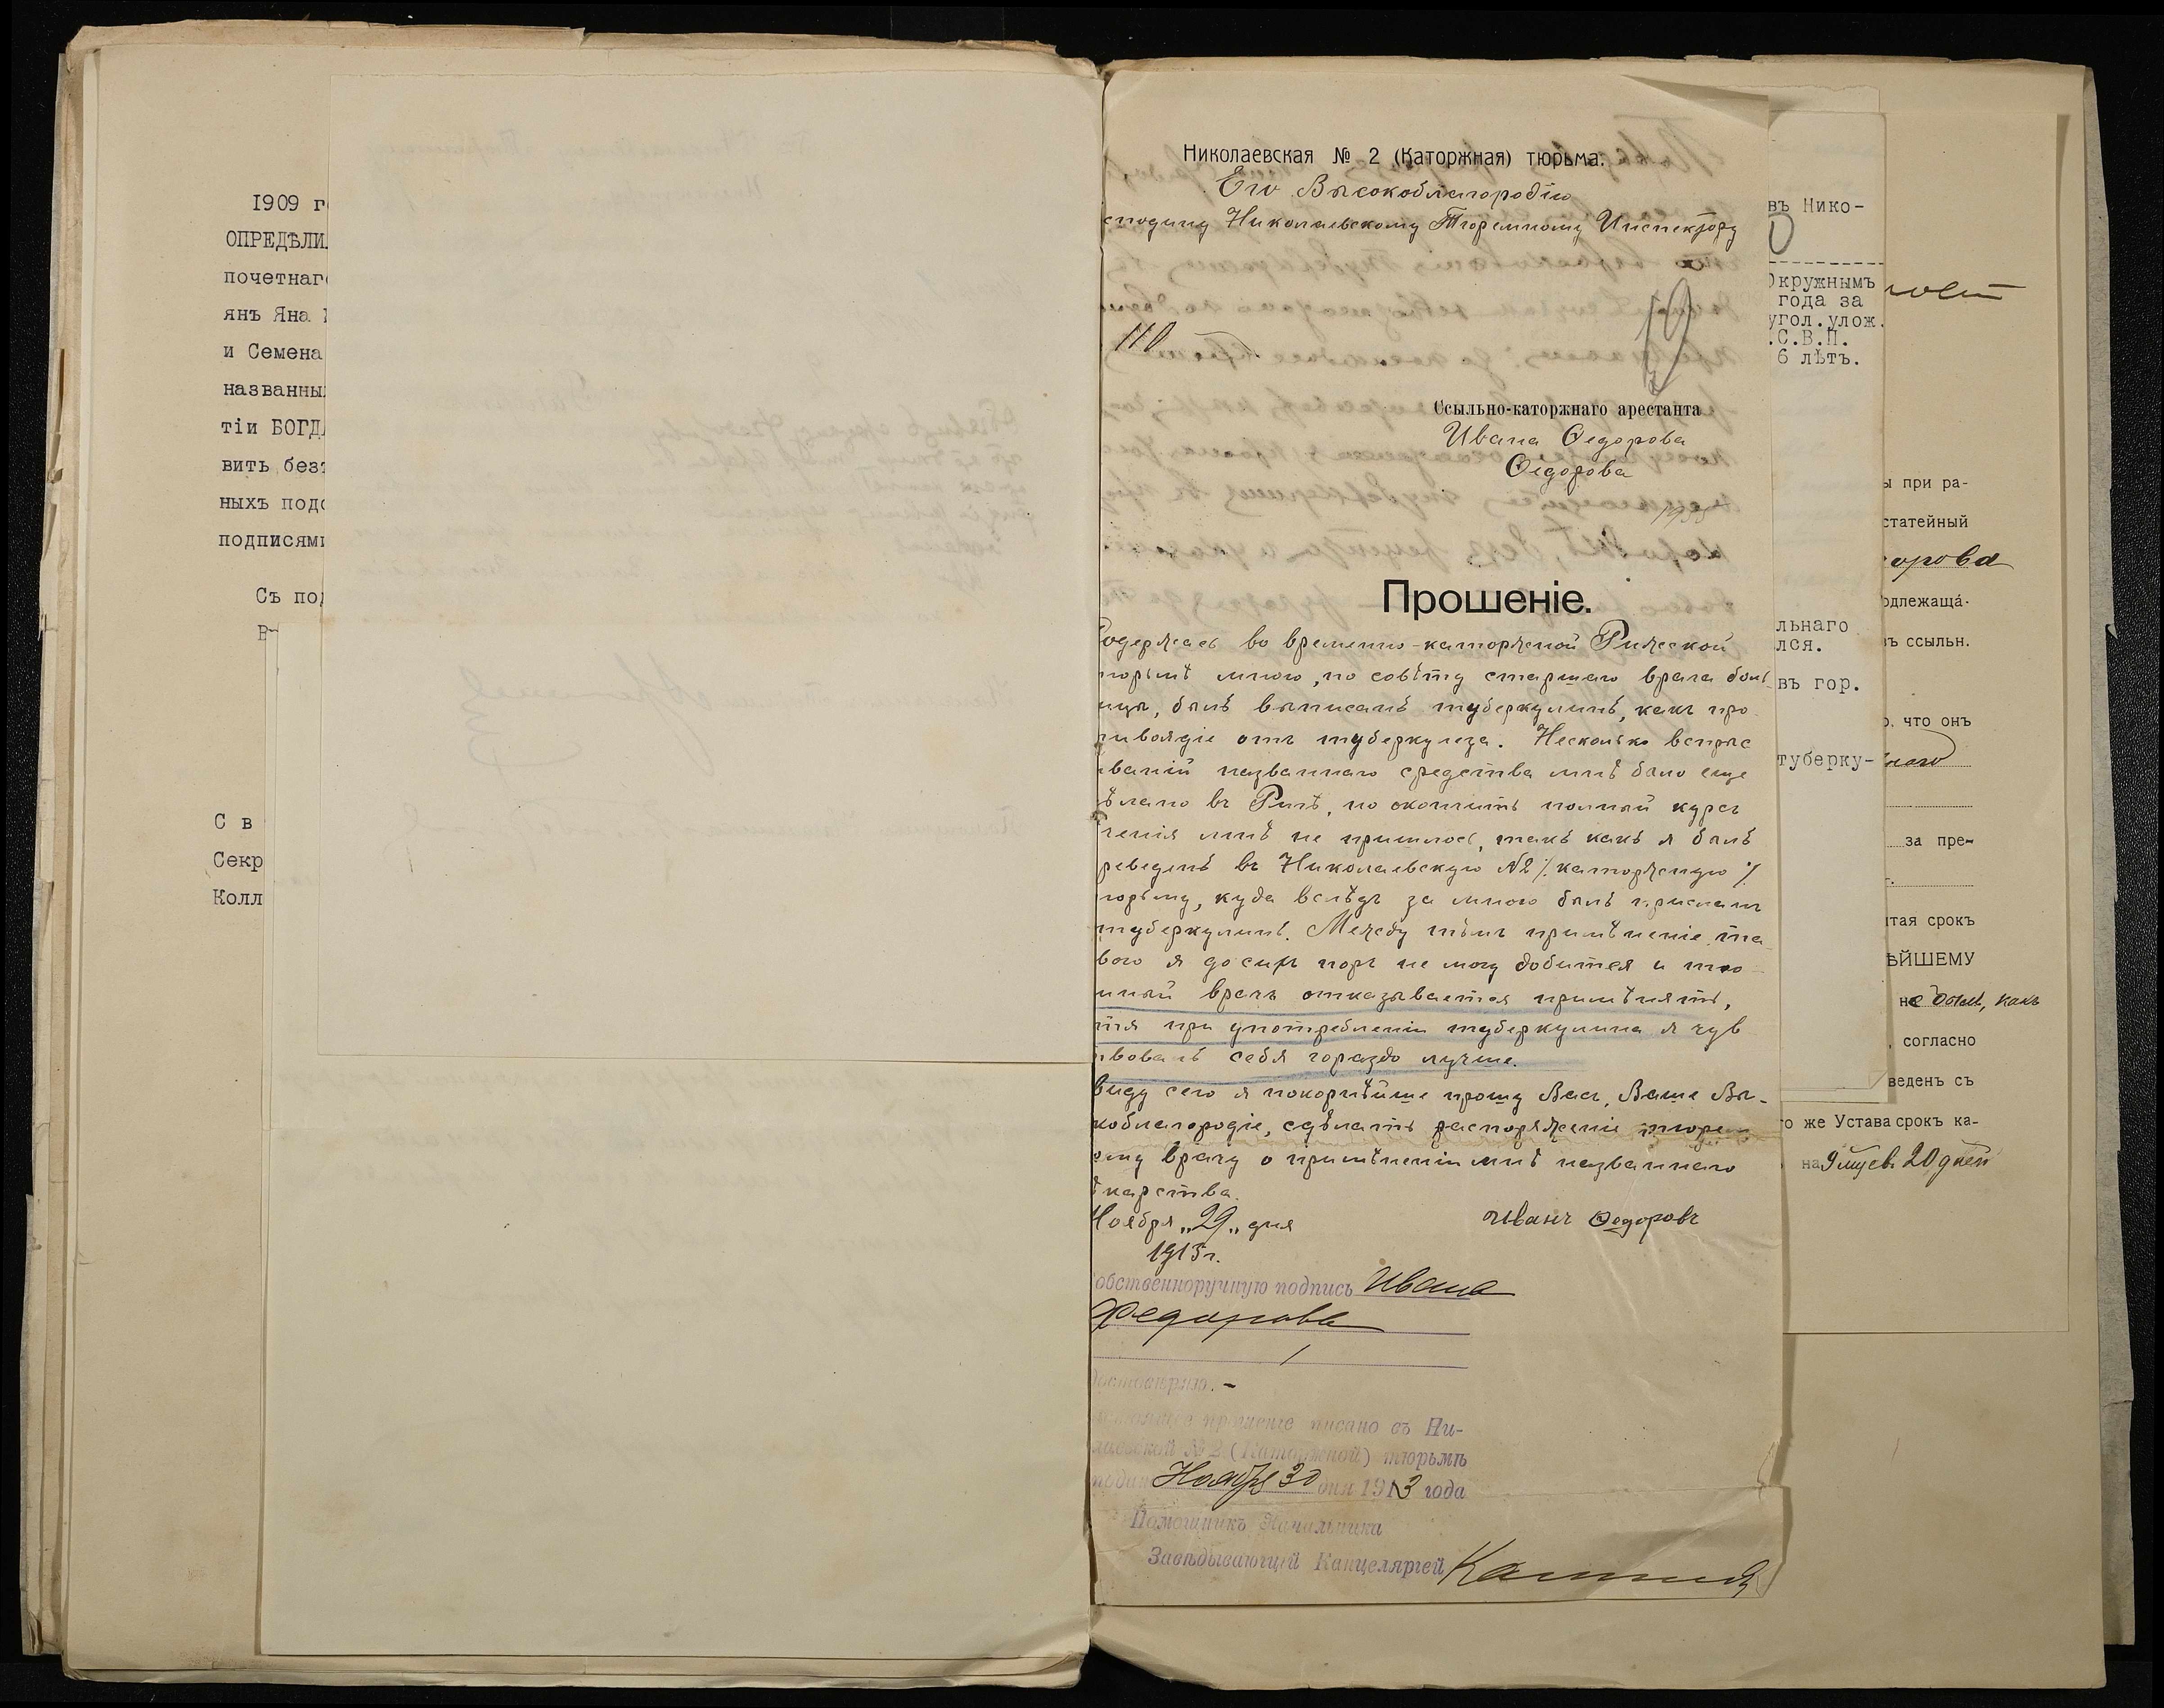 1909 г
ОПРЕДѢЛИ
почетнаг
янъ Яна
и Семена
названны
тіи БОГД
вить без
ныхъ под
подписям
Съ по
В
С в
Секр
Колл
Николаевская № 2 (Каторжная) тюрьма.
Его Высокоблагородію
сподину Николаевскому Тюремному Инспектору
110
19
Ссыльно-каторжнаго арестанта
Ивана Ѳедорова
Ѳедорова
Прошеніе.
Содержась во временно-каторжной Рижской
тюрьмѣ мною, по совѣту старшаго врача боль
ицы, былъ выписанъ туберкулинъ, какъ про
тивоядіе отъ туберкулеза. Несколько впрыс
иваній названнаго средства мнѣ было еще
ѣлано въ Ригѣ, но окончить полный курсъ
ченія мнѣ не пришлось, такъ какъ я былъ
реведенъ въ Николаевскую №2 /.каторжную/.
тюрьму, куда вслѣдъ за мною былъ присланъ
туберкулинъ. Между тѣмъ примѣненіе та
вого я до сихъ поръ не могу добиться и тю
мный врачъ отказывается примѣнять,
тя при употребленіи туберкулина я чув
твовалъ себя гораздо лучше.
виду сего я покорнѣйше прошу Васъ, Ваше Вы-
коблагородіе, сдѣлать распоряженіе тюрем
ому врачу о примѣненіи мнѣ названнаго
ѣкарства.
Ноября „29„ дня
Иванъ Ѳедоровъ
1913г.
обственноручную подпись Ивана
Федорова
достовѣряю. -
стоящее прошеніе писано въ Ни-
лаевской № 2 (Каторжной) тюрьмѣ
подан Ноября 30 дня 1913 года
Помощникъ Начальника
Завѣдывающій Канцеляріей
въ Нико-
Окружнымъ
года за
угол.улож.
.С.В.П.
6 лѣтъ.
льнаго
лся.
въ гор.
туберку-
ы при ра-
статейный
орова
одлежаща-
въ ссыльн.
о, что онъ
за пре-
г.
тая срокъ
ѢЙШЕМУ
не былъ, какъ
, согласно
веденъ съ
о же Устава срокъ ка-
на 9 мцев. 20 дней